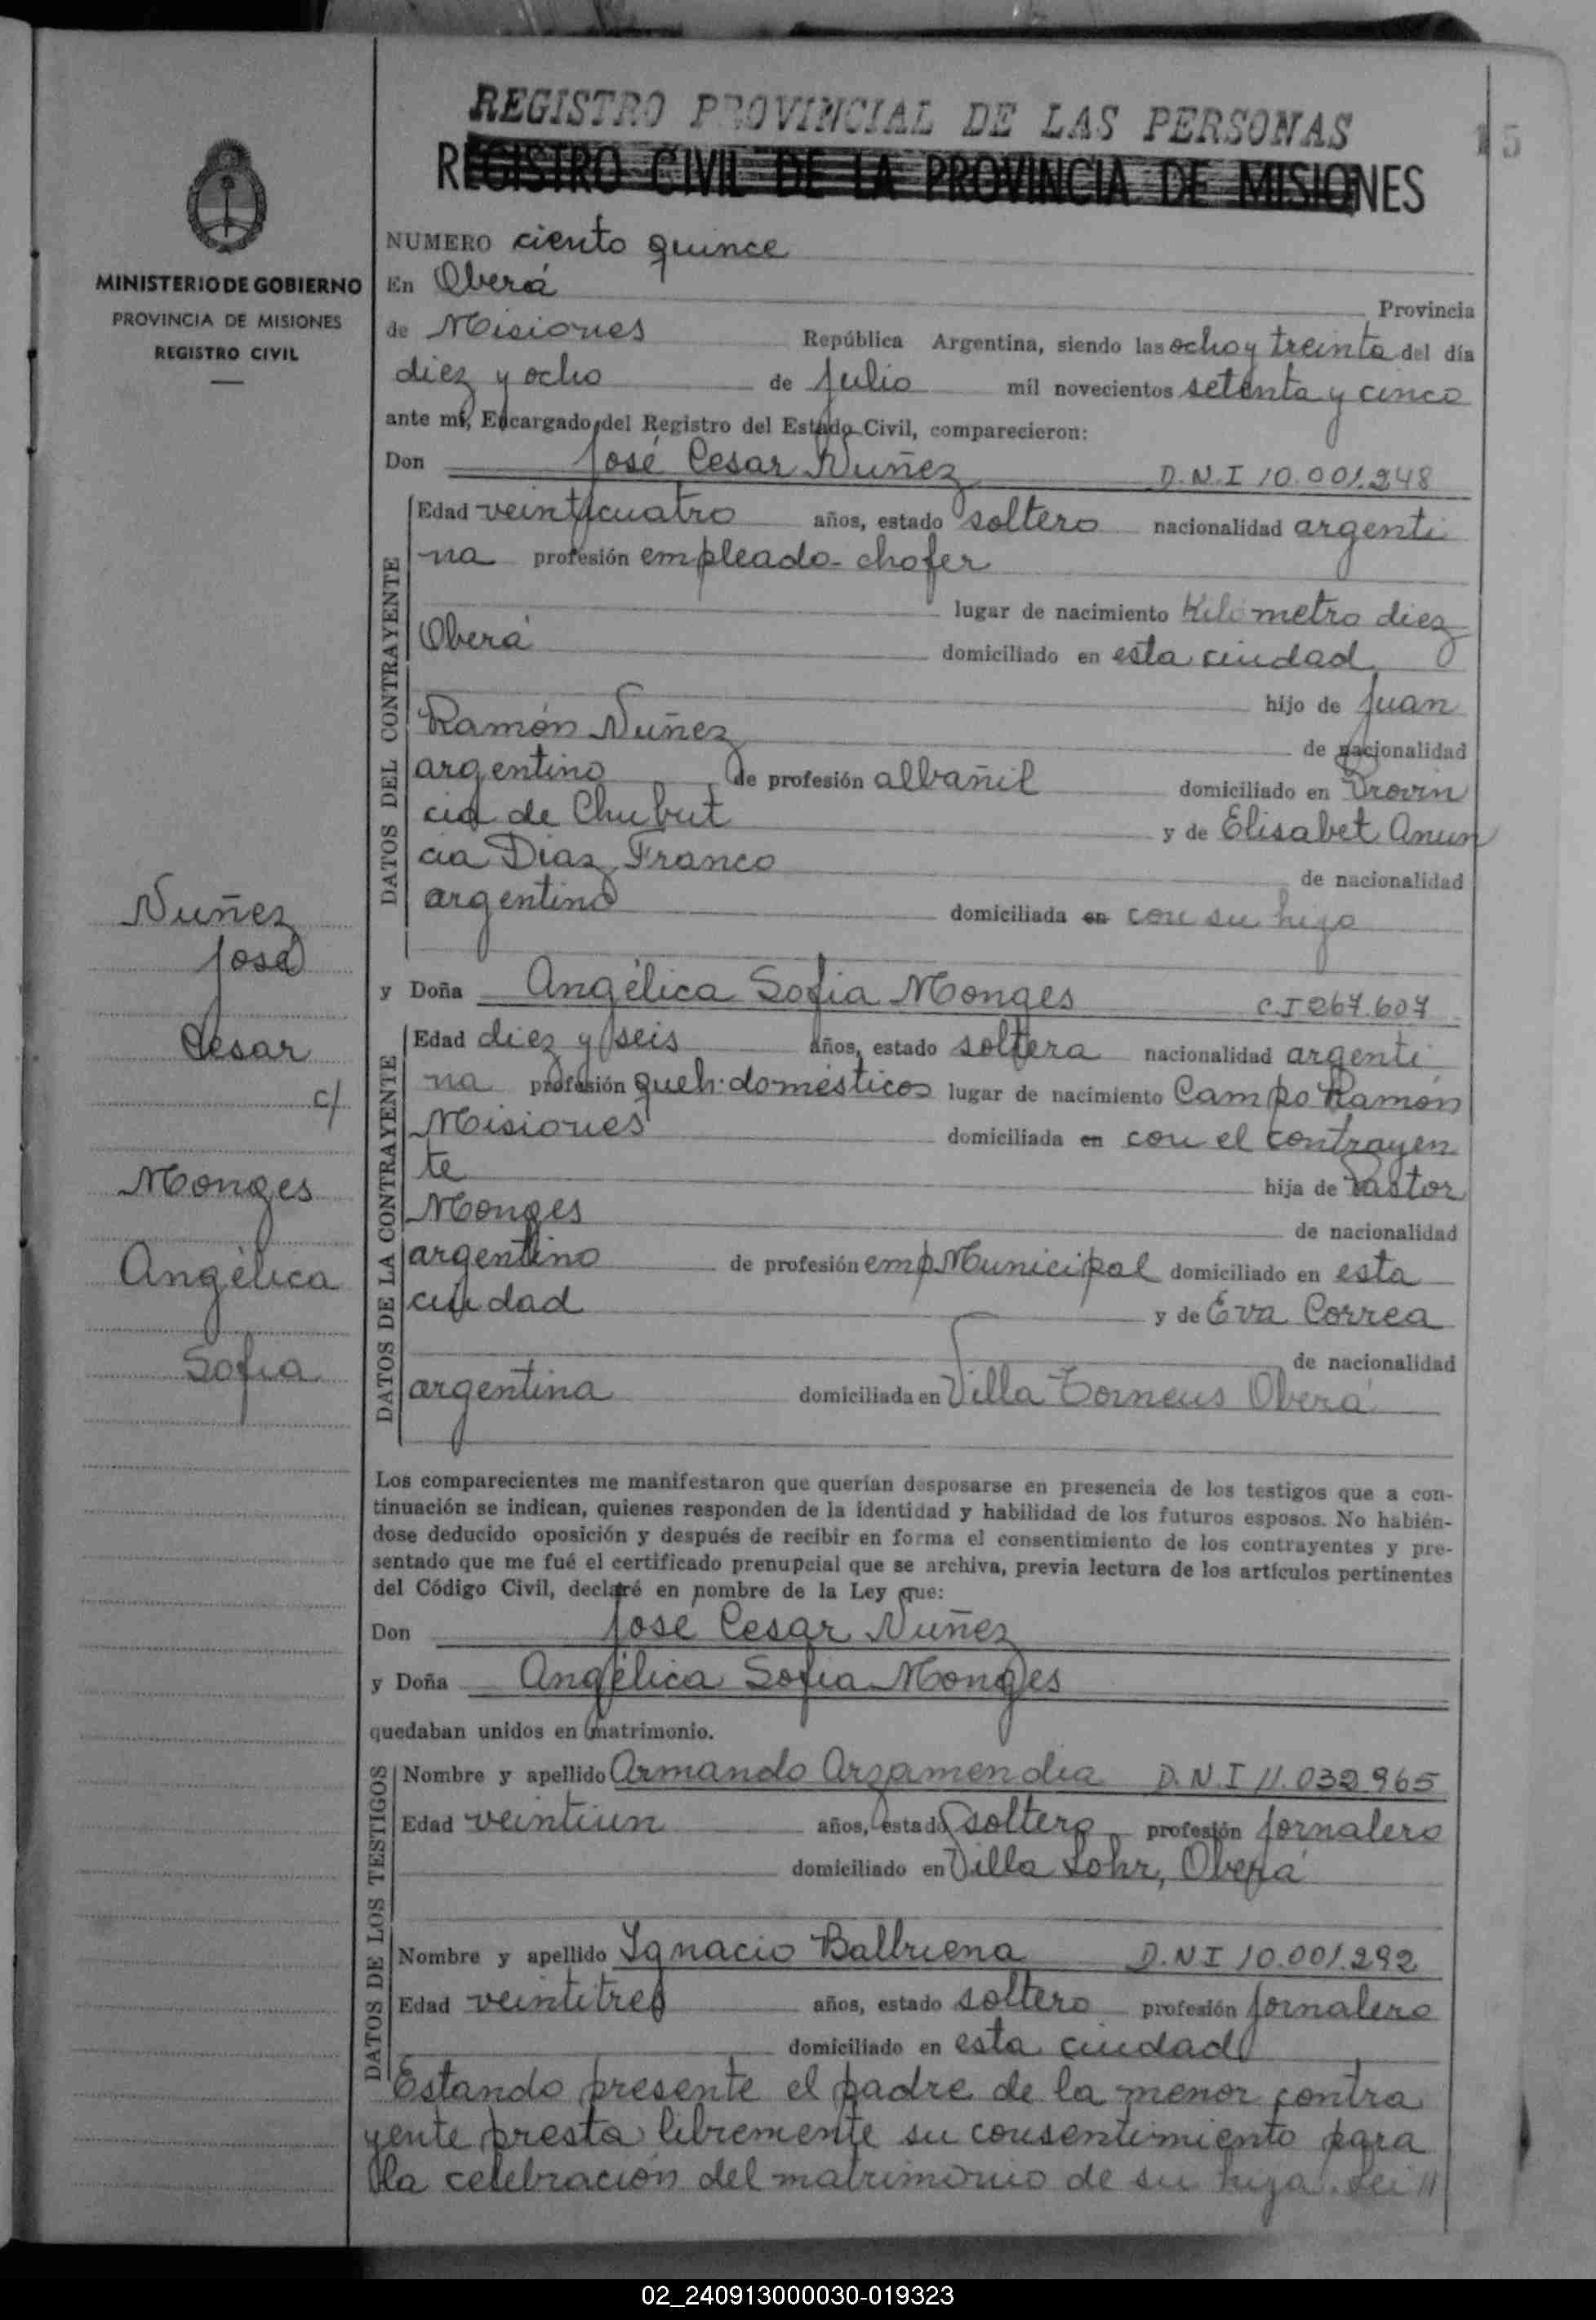 REGISTRO PROVINCIAL DE LAS PERSONAS
REGISTRO CIVIL DE LA PROVINCIA DE MISIONES
15
MINISTERIO DE GOBIERNO
PROVINCIA DE MISIONES
REGISTRO CIVIL
NUMERO ciento quince
En Oberá Provincia
de Misiones República Argentina, siendo las ocho y treinta del día
diez y ocho de Julio mil novecientos setenta y cinco
ante mí, Encargado del Registro del Estado Civil, comparecieron:
Don José Cesar Nuñez D.N.I 10.001.248
DATOS DEL CONTRAYENTE
Edad veinticuatro años, estado soltero nacionalidad argenti
na profesión empleado-chofer
lugar de nacimiento Kilometro diez
Oberá domiciliado en esta ciudad
hijo de Juan
Ramón Nuñez de nacionalidad
argentino de profesión albañil domiciliado en Provin
cia de Chubut y de Elisabet Anun
cia Diaz Franco de nacionalidad
argentina domiciliada en con su hijo
y Doña Angélica Sofia Monges C.I 267.607
DATOS DE LA CONTRAYENTE
Edad diez y seis años, estado soltera nacionalidad argenti
na profesión queh. domésticos lugar de nacimiento Campo Ramón
Misiones domiciliada en con el contrayen
te hija de Pastor
Monges de nacionalidad
argentino de profesión emp Municipal domiciliado en esta
ciudad y de Eva Correa
de nacionalidad
argentina domiciliada en Villa Torneus Oberá
Nuñez
José
Cesar
c/
Monges
Angélica
Sofia
Los comparecientes me manifestaron que querían desposarse en presencia de los testigos que a con-
tinuación se indican, quienes responden de la identidad y habilidad de los futuros esposos. No habién-
dose deducido oposición y después de recibir en forma el consentimiento de los contrayentes y pre-
sentado que me fué el certificado prenupcial que se archiva, previa lectura de los artículos pertinentes
del Código Civil, declaré en nombre de la Ley que:
Don José Cesar Nuñez
y Doña Angélica Sofia Monges
quedaban unidos en matrimonio.
DATOS DE LOS TESTIGOS
Nombre y apellido Armando Arzamendia D.N.I 11.032.965
Edad veintiun años, estado soltero profesión jornalero
domiciliado en Villa Lohr, Oberá
Nombre y apellido Ignacio Balbuena D.N I 10.001.292
Edad veintitres años, estado soltero profesión jornalero
domiciliado en esta ciudad
Estando presente el padre de la menor contra
yente presta libremente su consentimiento para
la celebración del matrimonio de su hija. Lei //
02_240913000030-019323